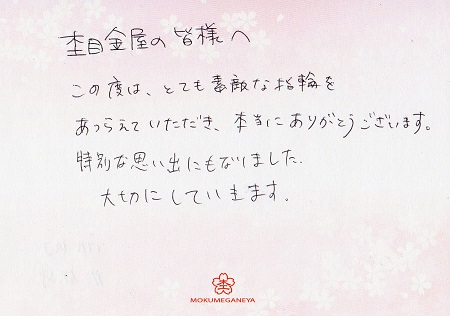 杢目金屋の皆様へ
この度は、とても素敵な指輪を
あつらえていただき、本当にありがとうございます。
特別な思い出にもなりました.
大切にしていきます。
MOKUMEGANEYA